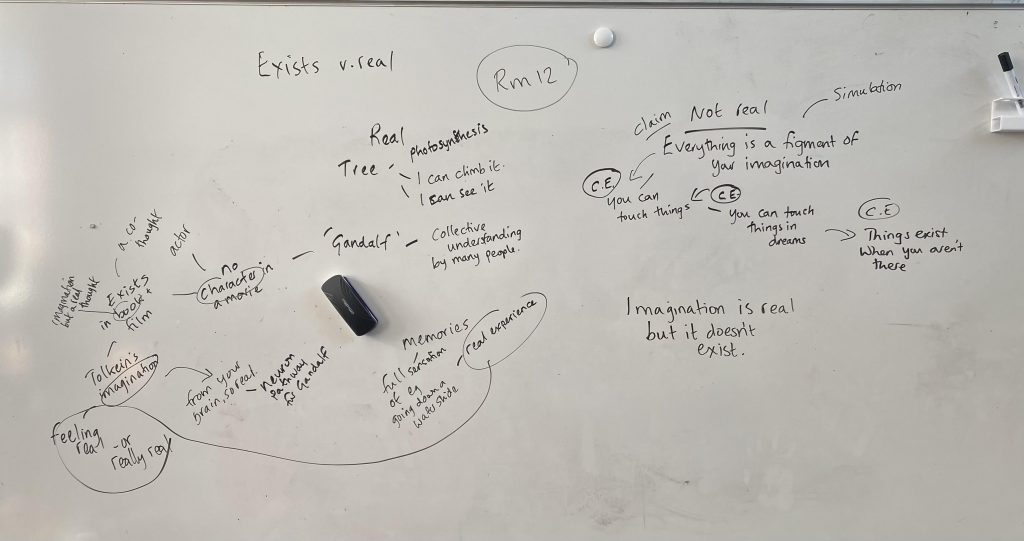 Exists v. real
Rm 12
Real
Tree
photosynthesis
I can climb it.
I can see it
'Gandalf'
Collective
understanding
by many people.
no
character in
a movie
actor
a co-
thought
Exists
in book +
film
imagination
but a real
thought
Tolkein's
imagination
from your
brain, so real.
neuron
pathway
for Gandalf
feeling
real - or
really real
memories
full sensation
of eg
going down a
water slide
real experience
claim
Not real
Simulation
Everything is a figment of
your imagination
C.E.
you can
touch things
C.E.
you can touch
things in
dreams
C.E
Things exist
when you aren't
there
Imagination is real
but it doesn't
exist.